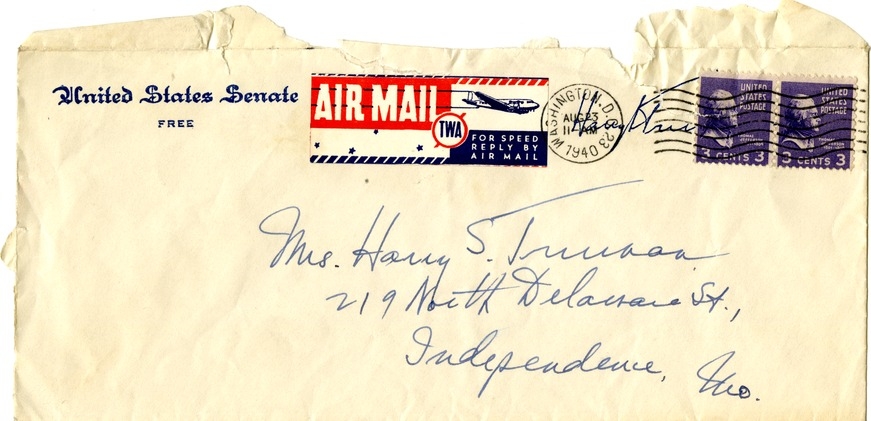 United States Senate
FREE
AIR MAIL
TWA
FOR SPEED
REPLY BY
AIR MAIL
WASHINGTON, D.C. 23
AUG 23
11 AM
1940
Harry S Truman
UNITED
STATES
POSTAGE
THOMAS
JEFFERSON
3 CENTS 3
UNITED
STATES
POSTAGE
3 CENTS 3
Mrs. Harry S. Truman
219 North Delaware St.,
Independence, Mo.